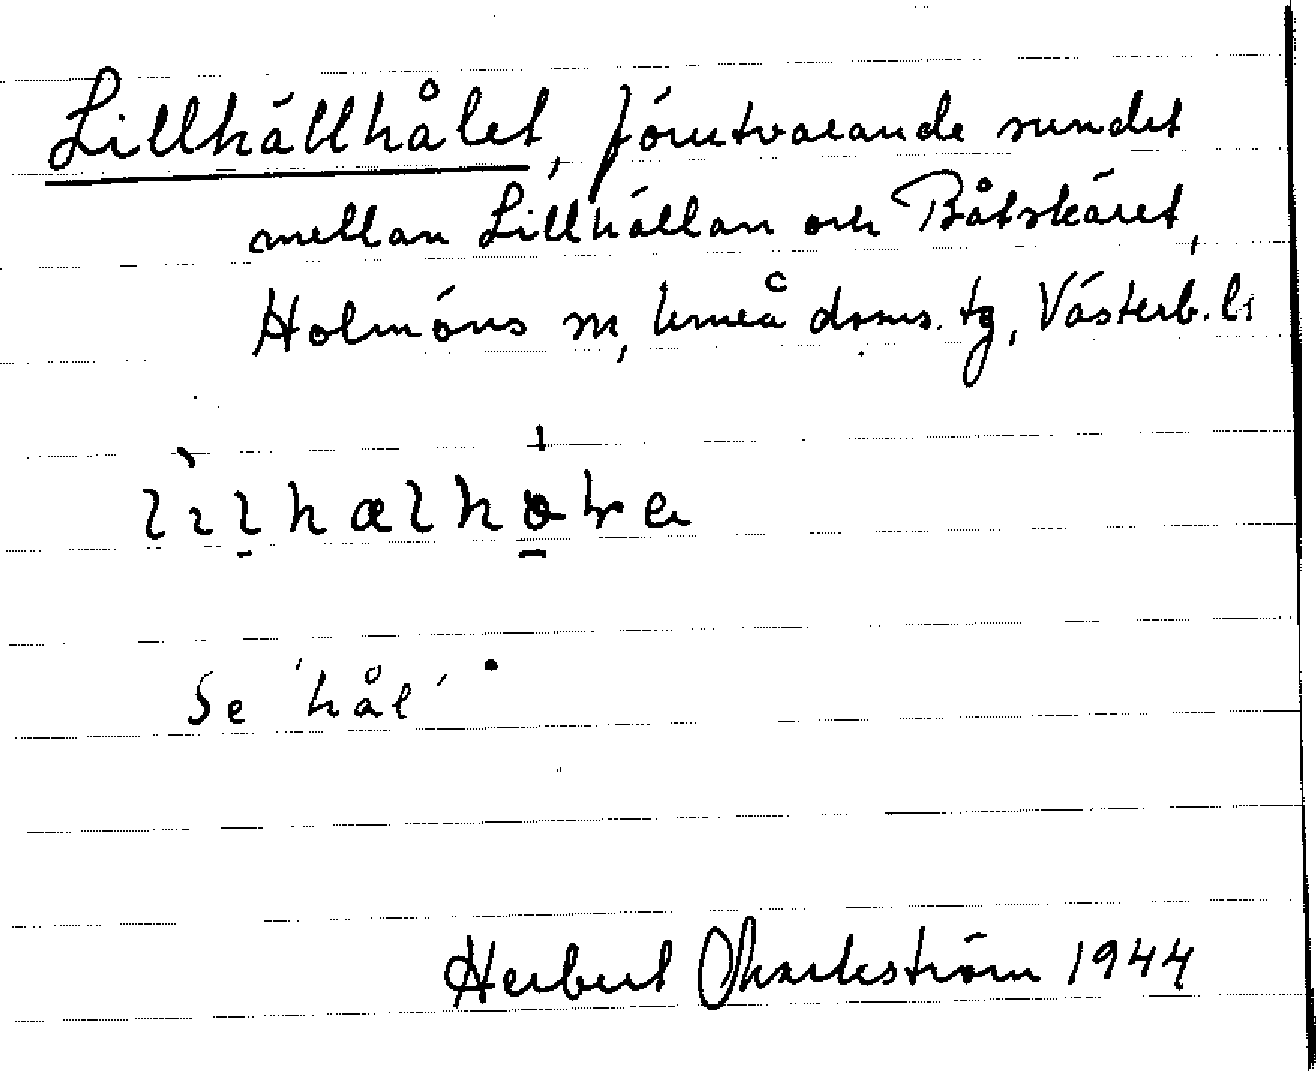 Lillhällhålet, förutvarande sundet
mellan Lillhällan och Båtskäret,
Holmöns sn, Umeå doms. tg, Västerb. ln
Se 'hål'.
Herbert Markström 1944